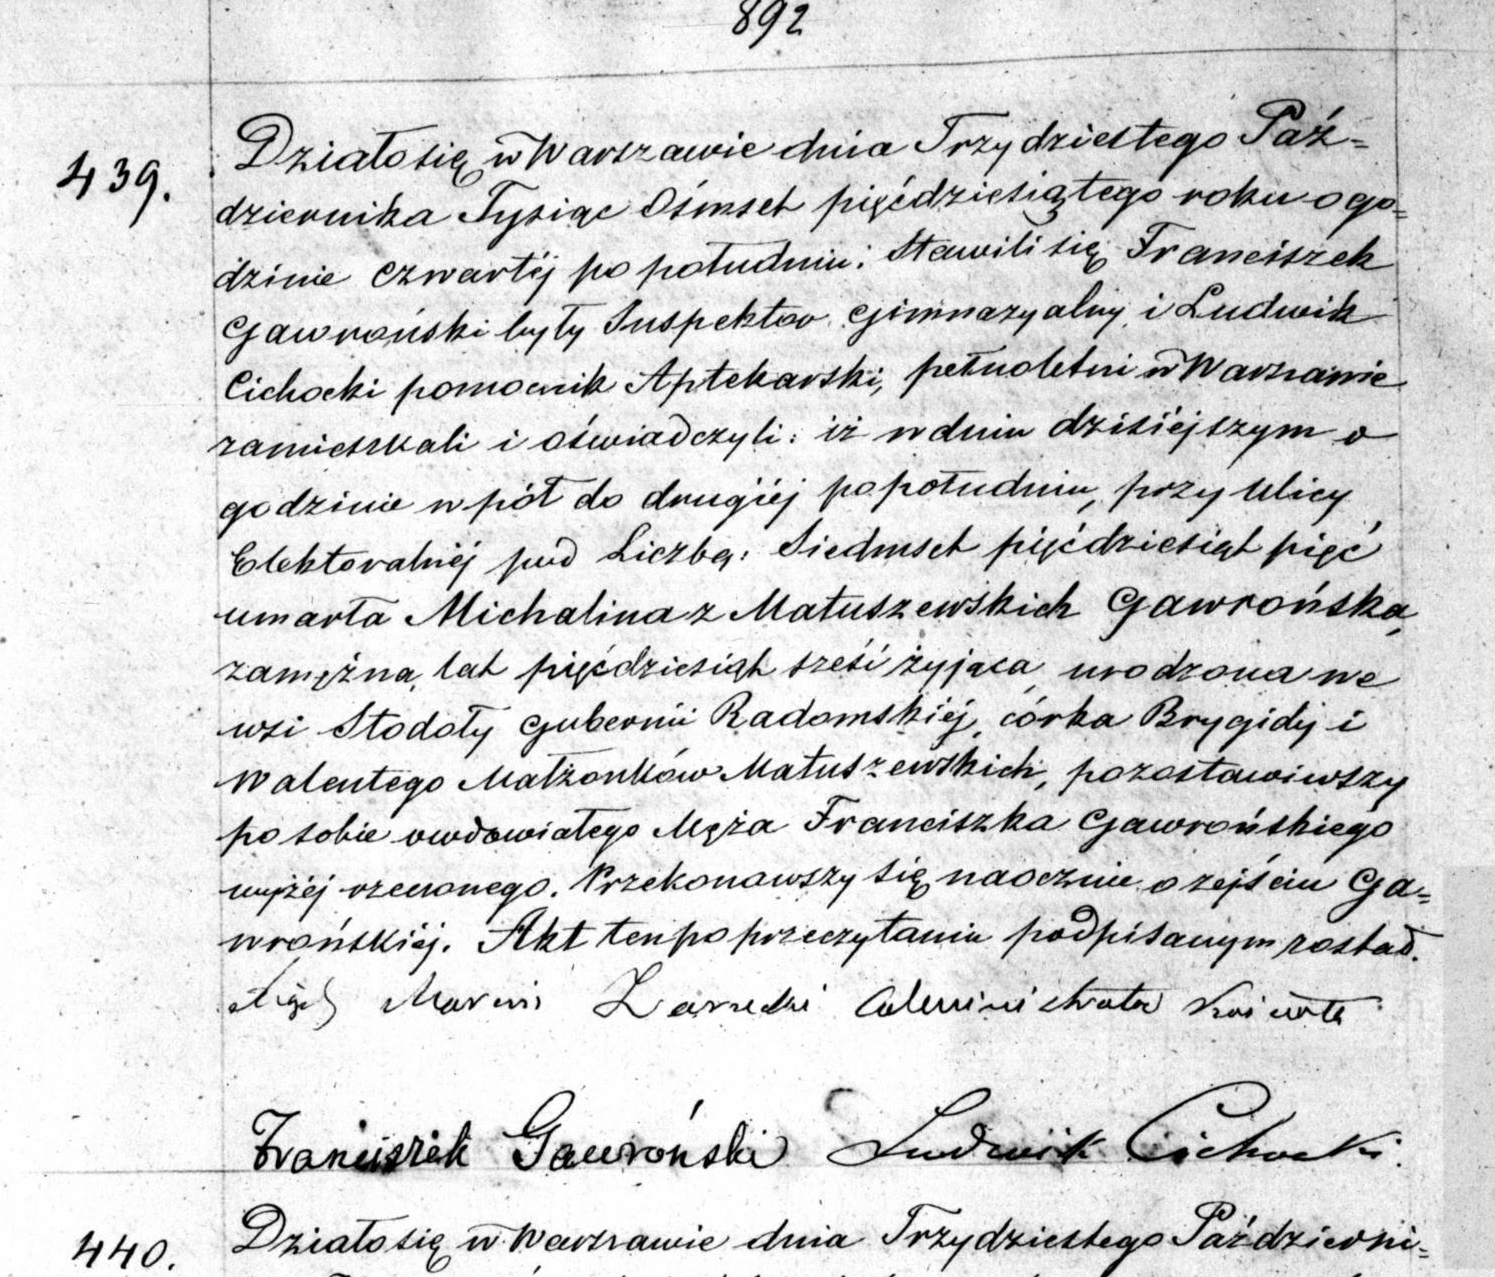 892
439.
Działo się w Warszawie dnia Trzydziestego Paź=
dziernika Tysiąc Ośmset pięćdziesiątego roku o go=
dzinie czwartéj po południu: Stawili się Franciszek
Gawroński były Inspektor Gimnazyalny i Ludwik
Cichocki pomocnik Aptekarski, pełnoletni w Warszawie
zamieszkali i oświadczyli: iż w dniu dzisiéjszym o
godzinie w pół do drugiéj po południu, przy Ulicy
Elektoralnéj pod Liczbą: Siedmset pięćdziesiąt pięć
umarła Michalina z Matuszewskich Gawrońska,
zamężna, lat pięćdziesiąt sześć żyjąca urodzona we
wsi Stodoły Gubernii Radomskiéj, córka Brygidy i
Walentego Małżonków Matuszewskich, pozostawiwszy
po sobie owdowiałego Męża Franciszka Gawrońskiego
wyżéj rzeczonego. Przekonawszy się naocznie o zejściu Ga=
wrońskiéj. Akt ten po przeczytaniu podpisanym został.
Marcin Administrator
Franciszek Gawroński Ludwik Cichocki.
440.
Działo się w Warszawie dnia Trzydziestego Październi=